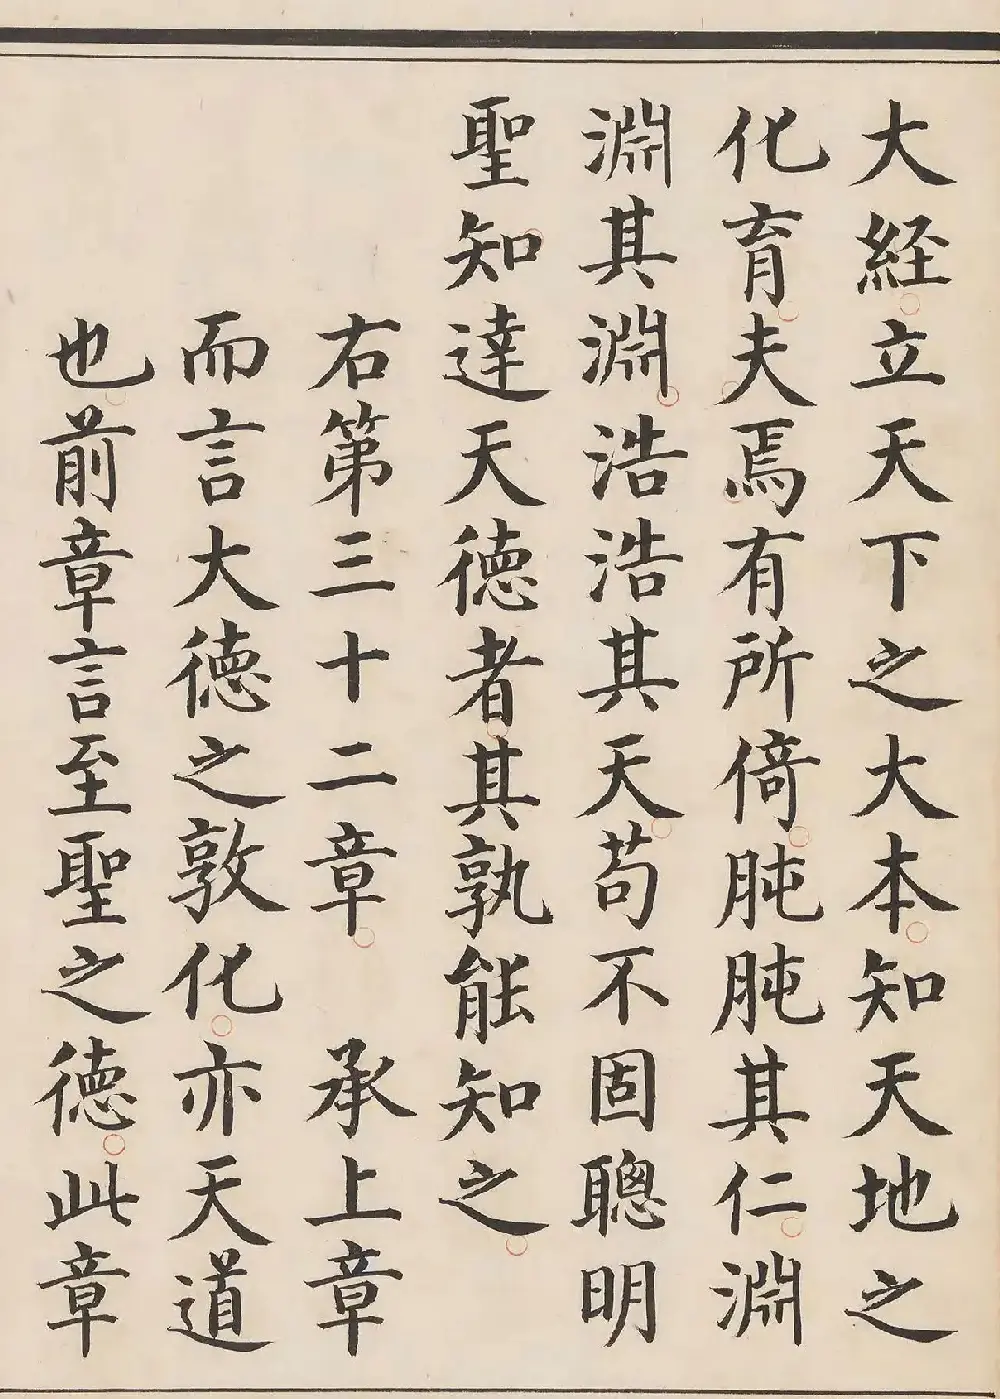 大経立天下之大本知天地之
化育夫焉有所倚肫肫其仁淵
淵其淵浩浩其天苟不固聰明
聖知達天德者其孰能知之
右第三十二章　承上章
而言大德之敦化亦天道
也前章言至聖之德此章